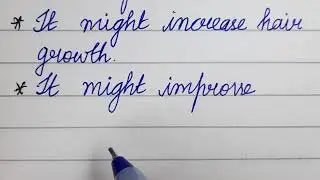 * It might increase hair
growth.
* It might improsve